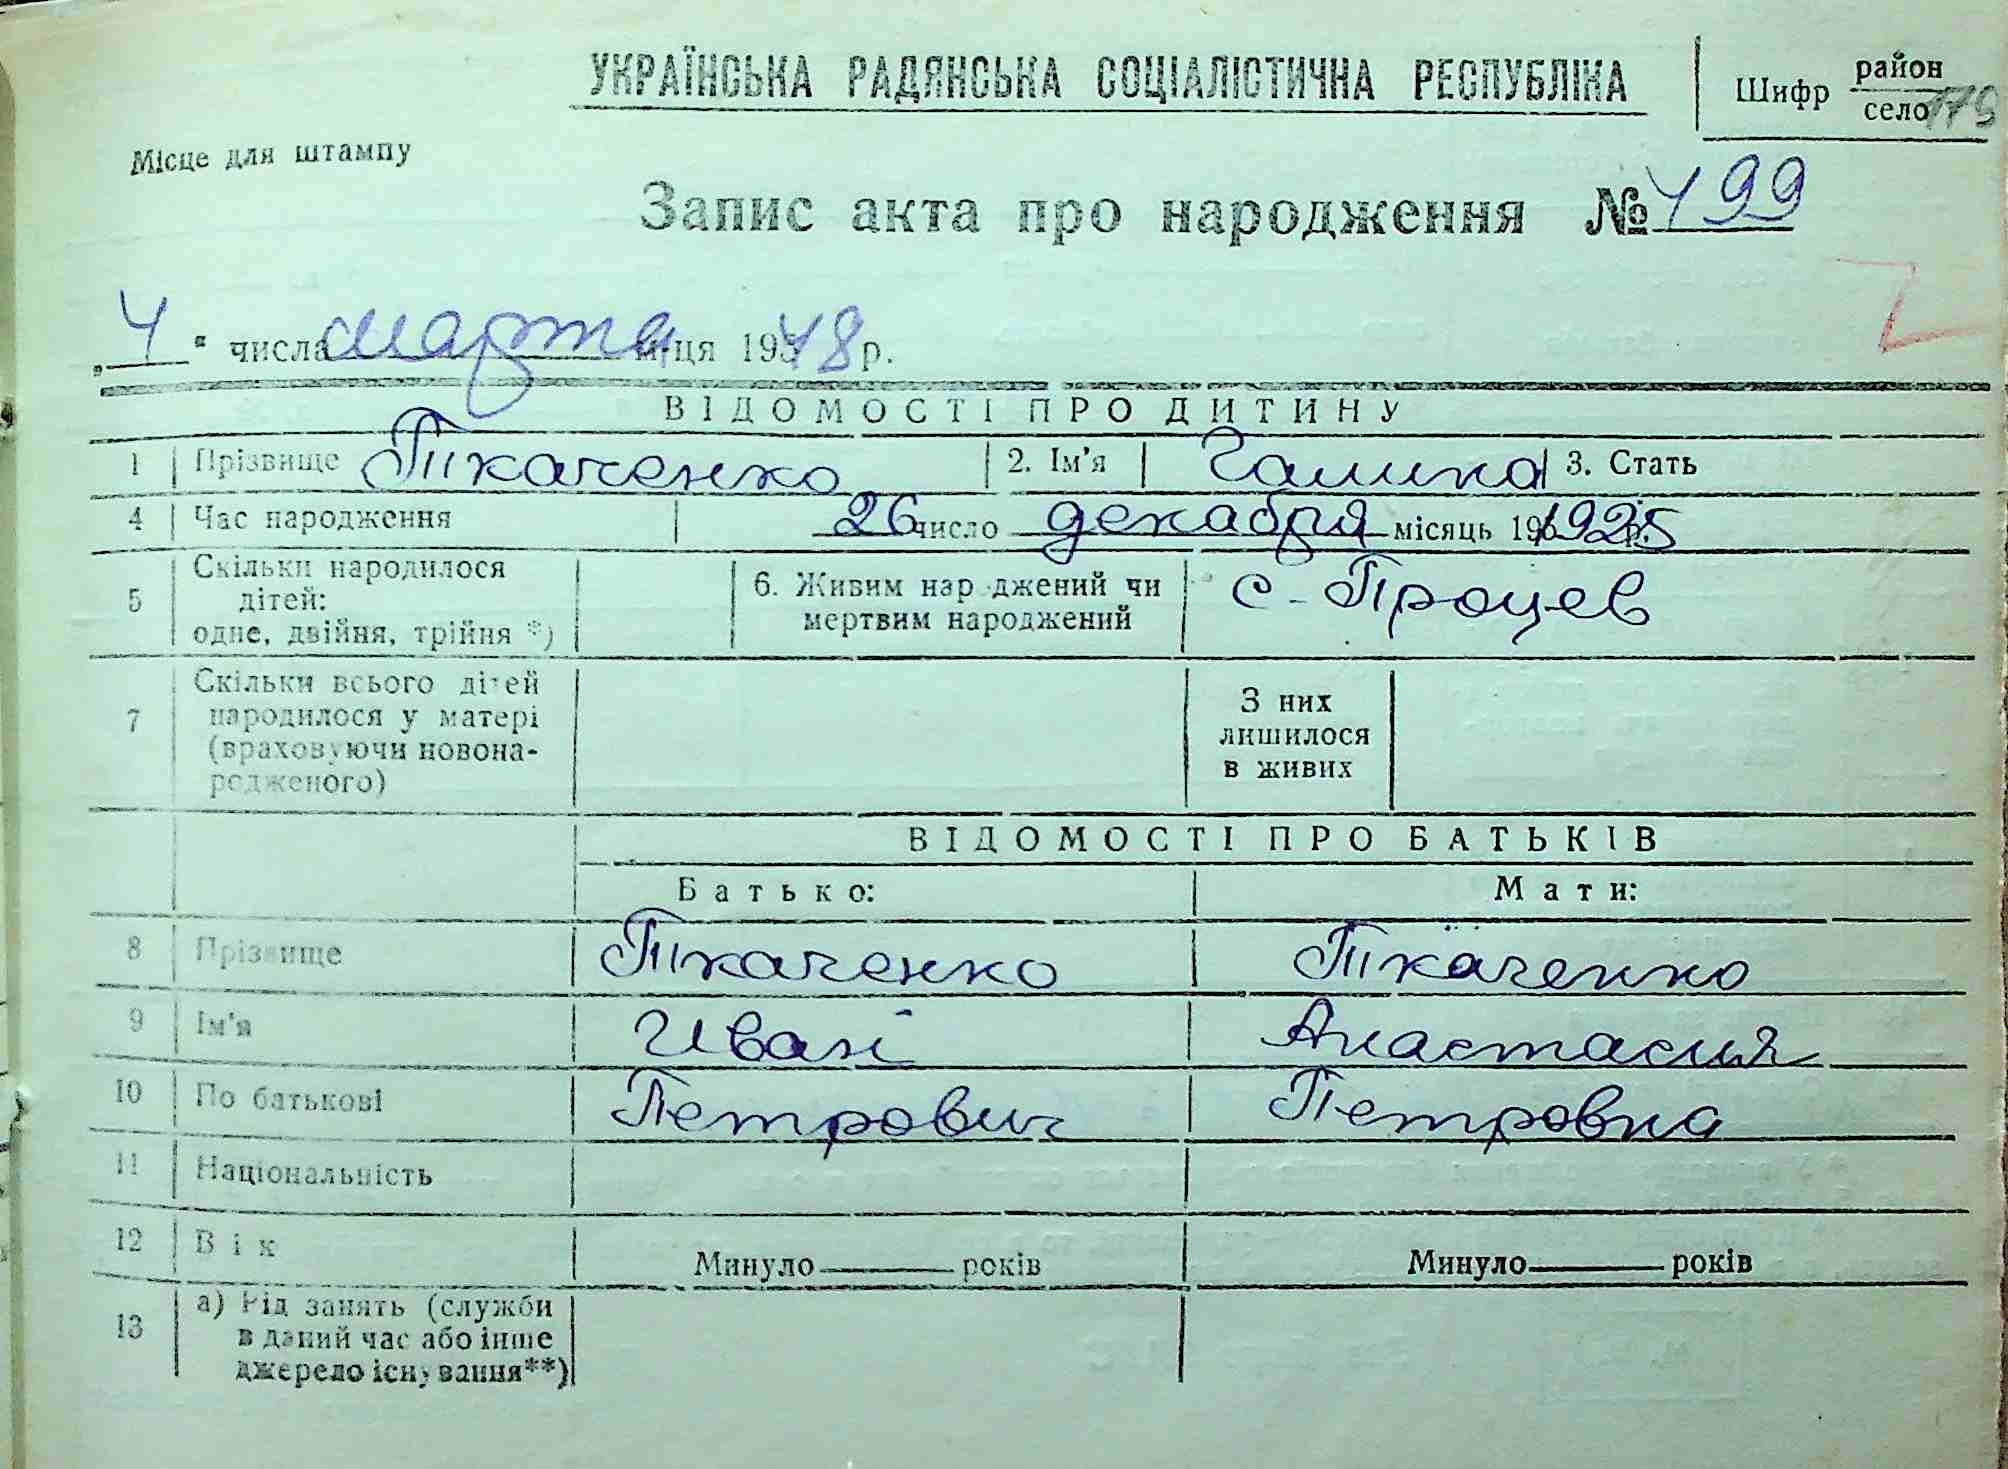 УКРАЇНСЬКА РАДЯНСЬКА СОЦІАЛІСТИЧНА РЕСПУБЛІКА
Шифр район село 179
Місце для штампу
Запис акта про народження № 499
„4" числа марта м-ця 1948 р.
ВІДОМОСТІ ПРО ДИТИНУ
1 Прізвище Ткаченко 2. Ім'я Галина 3. Стать
4 Час народження 26 число декабря місяць 1925 р.
5 Скільки народилося дітей: одне, двійня, трійня *) 6. Живим народжений чи мертвим народжений с. Процев
7 Скільки всього дітей народилося у матері (враховуючи новонародженого) З них лишилося в живих
ВІДОМОСТІ ПРО БАТЬКІВ
Батько: Мати:
8 Прізвище Ткаченко Ткаченко
9 Ім'я Иван Анастасия
10 По батькові Петрович Петровна
11 Національність
12 Вік Минуло років Минуло років
13 а) Рід занять (служби в даний час або інше джерело існування**)